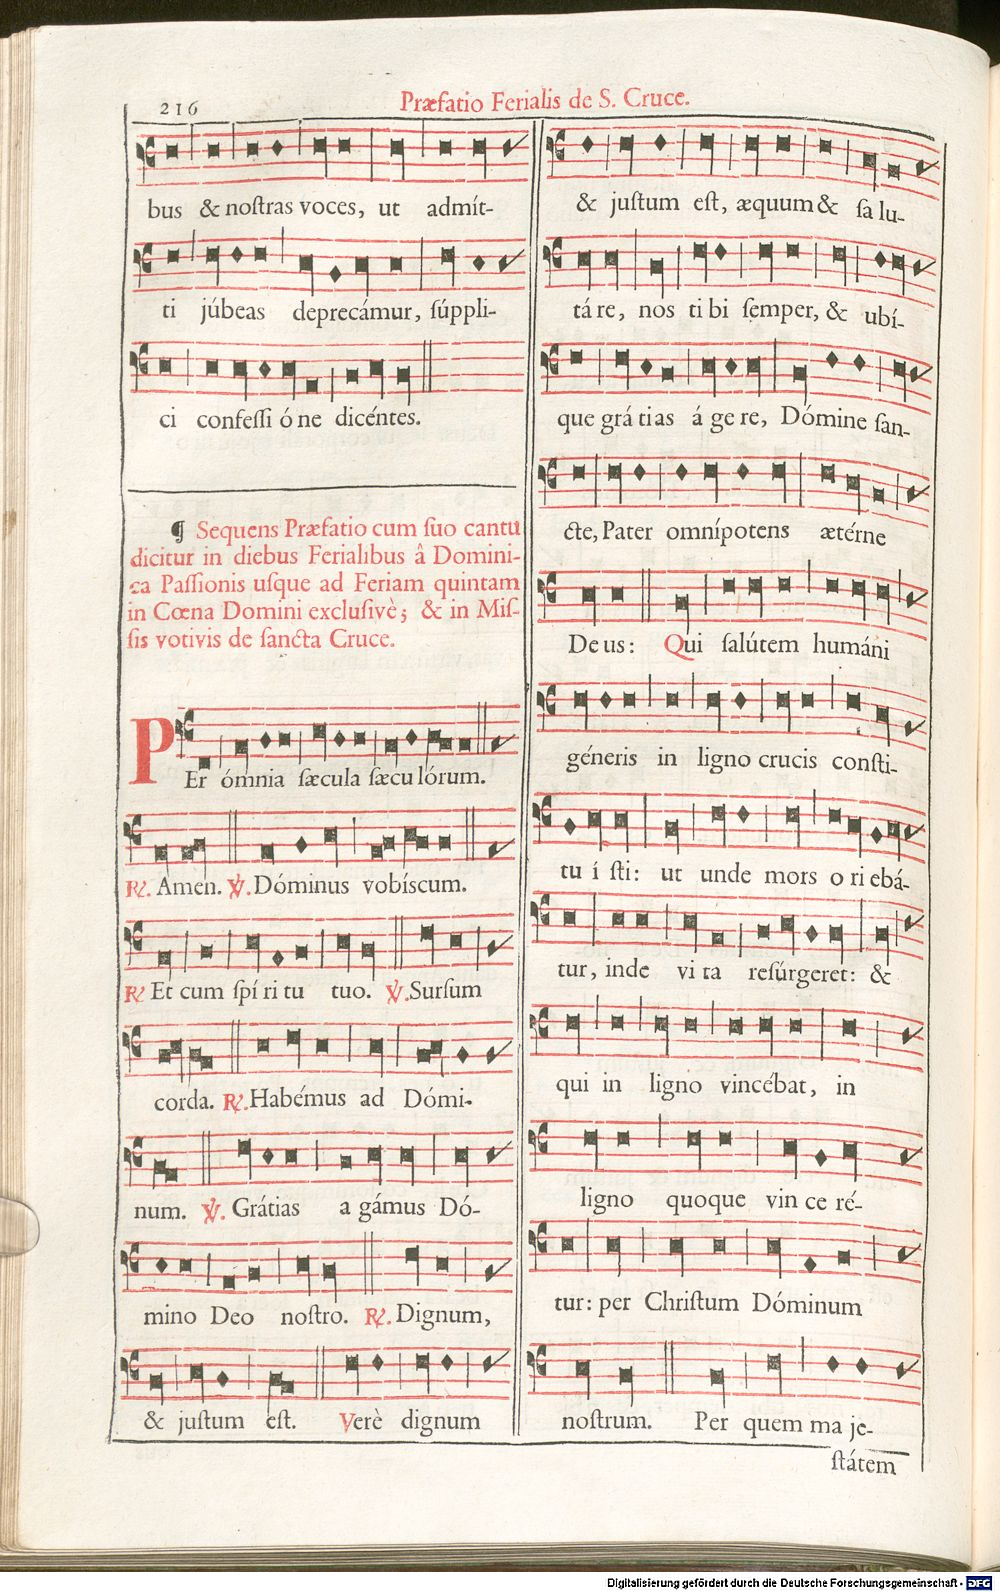 216
Præfatio Ferialis de S. Cruce.
bus & noſtras voces, ut admít-
ti júbeas deprecámur, ſúppli-
ci confeſſi ó ne dicéntes.
¶ Sequens Præfatio cum ſuo cantu
dicitur in diebus Ferialibus â Domini-
ca Paſſionis uſque ad Feriam quintam
in Cœna Domini excluſivè; & in Miſ-
ſis votivis de ſancta Cruce.
PEr ómnia ſæcula ſæcu lórum.
℟. Amen. ℣. Dóminus vobíscum.
℟ Et cum ſpí ri tu tuo. ℣. Surſum
corda. ℟. Habémus ad Dómi-
num. ℣. Grátias a gámus Dó-
mino Deo noſtro. ℟. Dignum,
& juſtum eſt. Verè dignum
& juſtum eſt, æquum & ſa lu-
tá re, nos ti bi ſemper, & ubí-
que grá ti as á ge re, Dómine ſan-
cte, Pater omnípotens ætérne
De us: Qui ſalútem humáni
géneris in ligno crucis conſti-
tu í ſti: ut unde mors o ri ebá-
tur, inde vi ta reſúrgeret: &
qui in ligno vincébat, in
ligno quoque vin ce ré-
tur: per Chriſtum Dóminum
noſtrum. Per quem ma je-
ſtátem
Digitalisierung gefördert durch die Deutsche Forschungsgemeinschaft - DFG